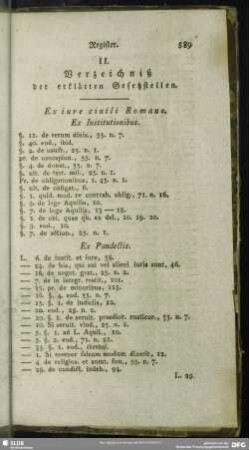 Register. 589
II.
Verzeichniß
der erklärten Gesetzstellen.
Ex iure ciuili Romano.
Ex Institutionibus.
§. 11. de rerum diuis., 55. n. 7.
§. 40. eod., ibid.
§. 2. de usufr., 25. n. 1.
pr. de usucapion., 55. n. 7.
§. 4. de donat., 55. n. 7.
§. ult. de test. mil., 25. n. 2.
Pr. de obligationibus, 1. 25. n. 1.
§. ult. de obligat., 6.
§. 1. quib. mod. re contrah. oblig., 71. n. 16.
§. 6. de lege Aquilia, 10.
§. 7. de lege Aquilia, 13 — 15.
§. 1. de obl. quae qu. ex del., 10. 19. 20.
§. 3. eod., 10.
§. 7. de action., 25. n. 1.
Ex Pandectis.
L. 6. de iustit. et iure, 56.
— 24. de his, qui sui vel alieni iuris sunt, 46.
— 16. de negot. gest., 25. n. 2.
— 7. de in integr. restit., 101.
— 15. pr. de minoribus, 123.
— 16. §. 4. eod. 55. n. 7.
— 15. §. 2. de iudiciis, 12.
— 20. eod., 25. n. 2.
— 20. §. 2. de seruit. praedior. rusticor., 55. n. 7.
— 10. Si seruit. vind., 25. n. 1.
— 5. §. 1. ad L. Aquil., 10.
— 5. §. 2. eod., 71. n. 52.
— 1. Si mensor falsum modum dixerit, 12.
— 4. de religios. et sumt. fun., 55. n. 7.
— 25. de condict. indeb., 94.
L. 29.
SLUB
DFG